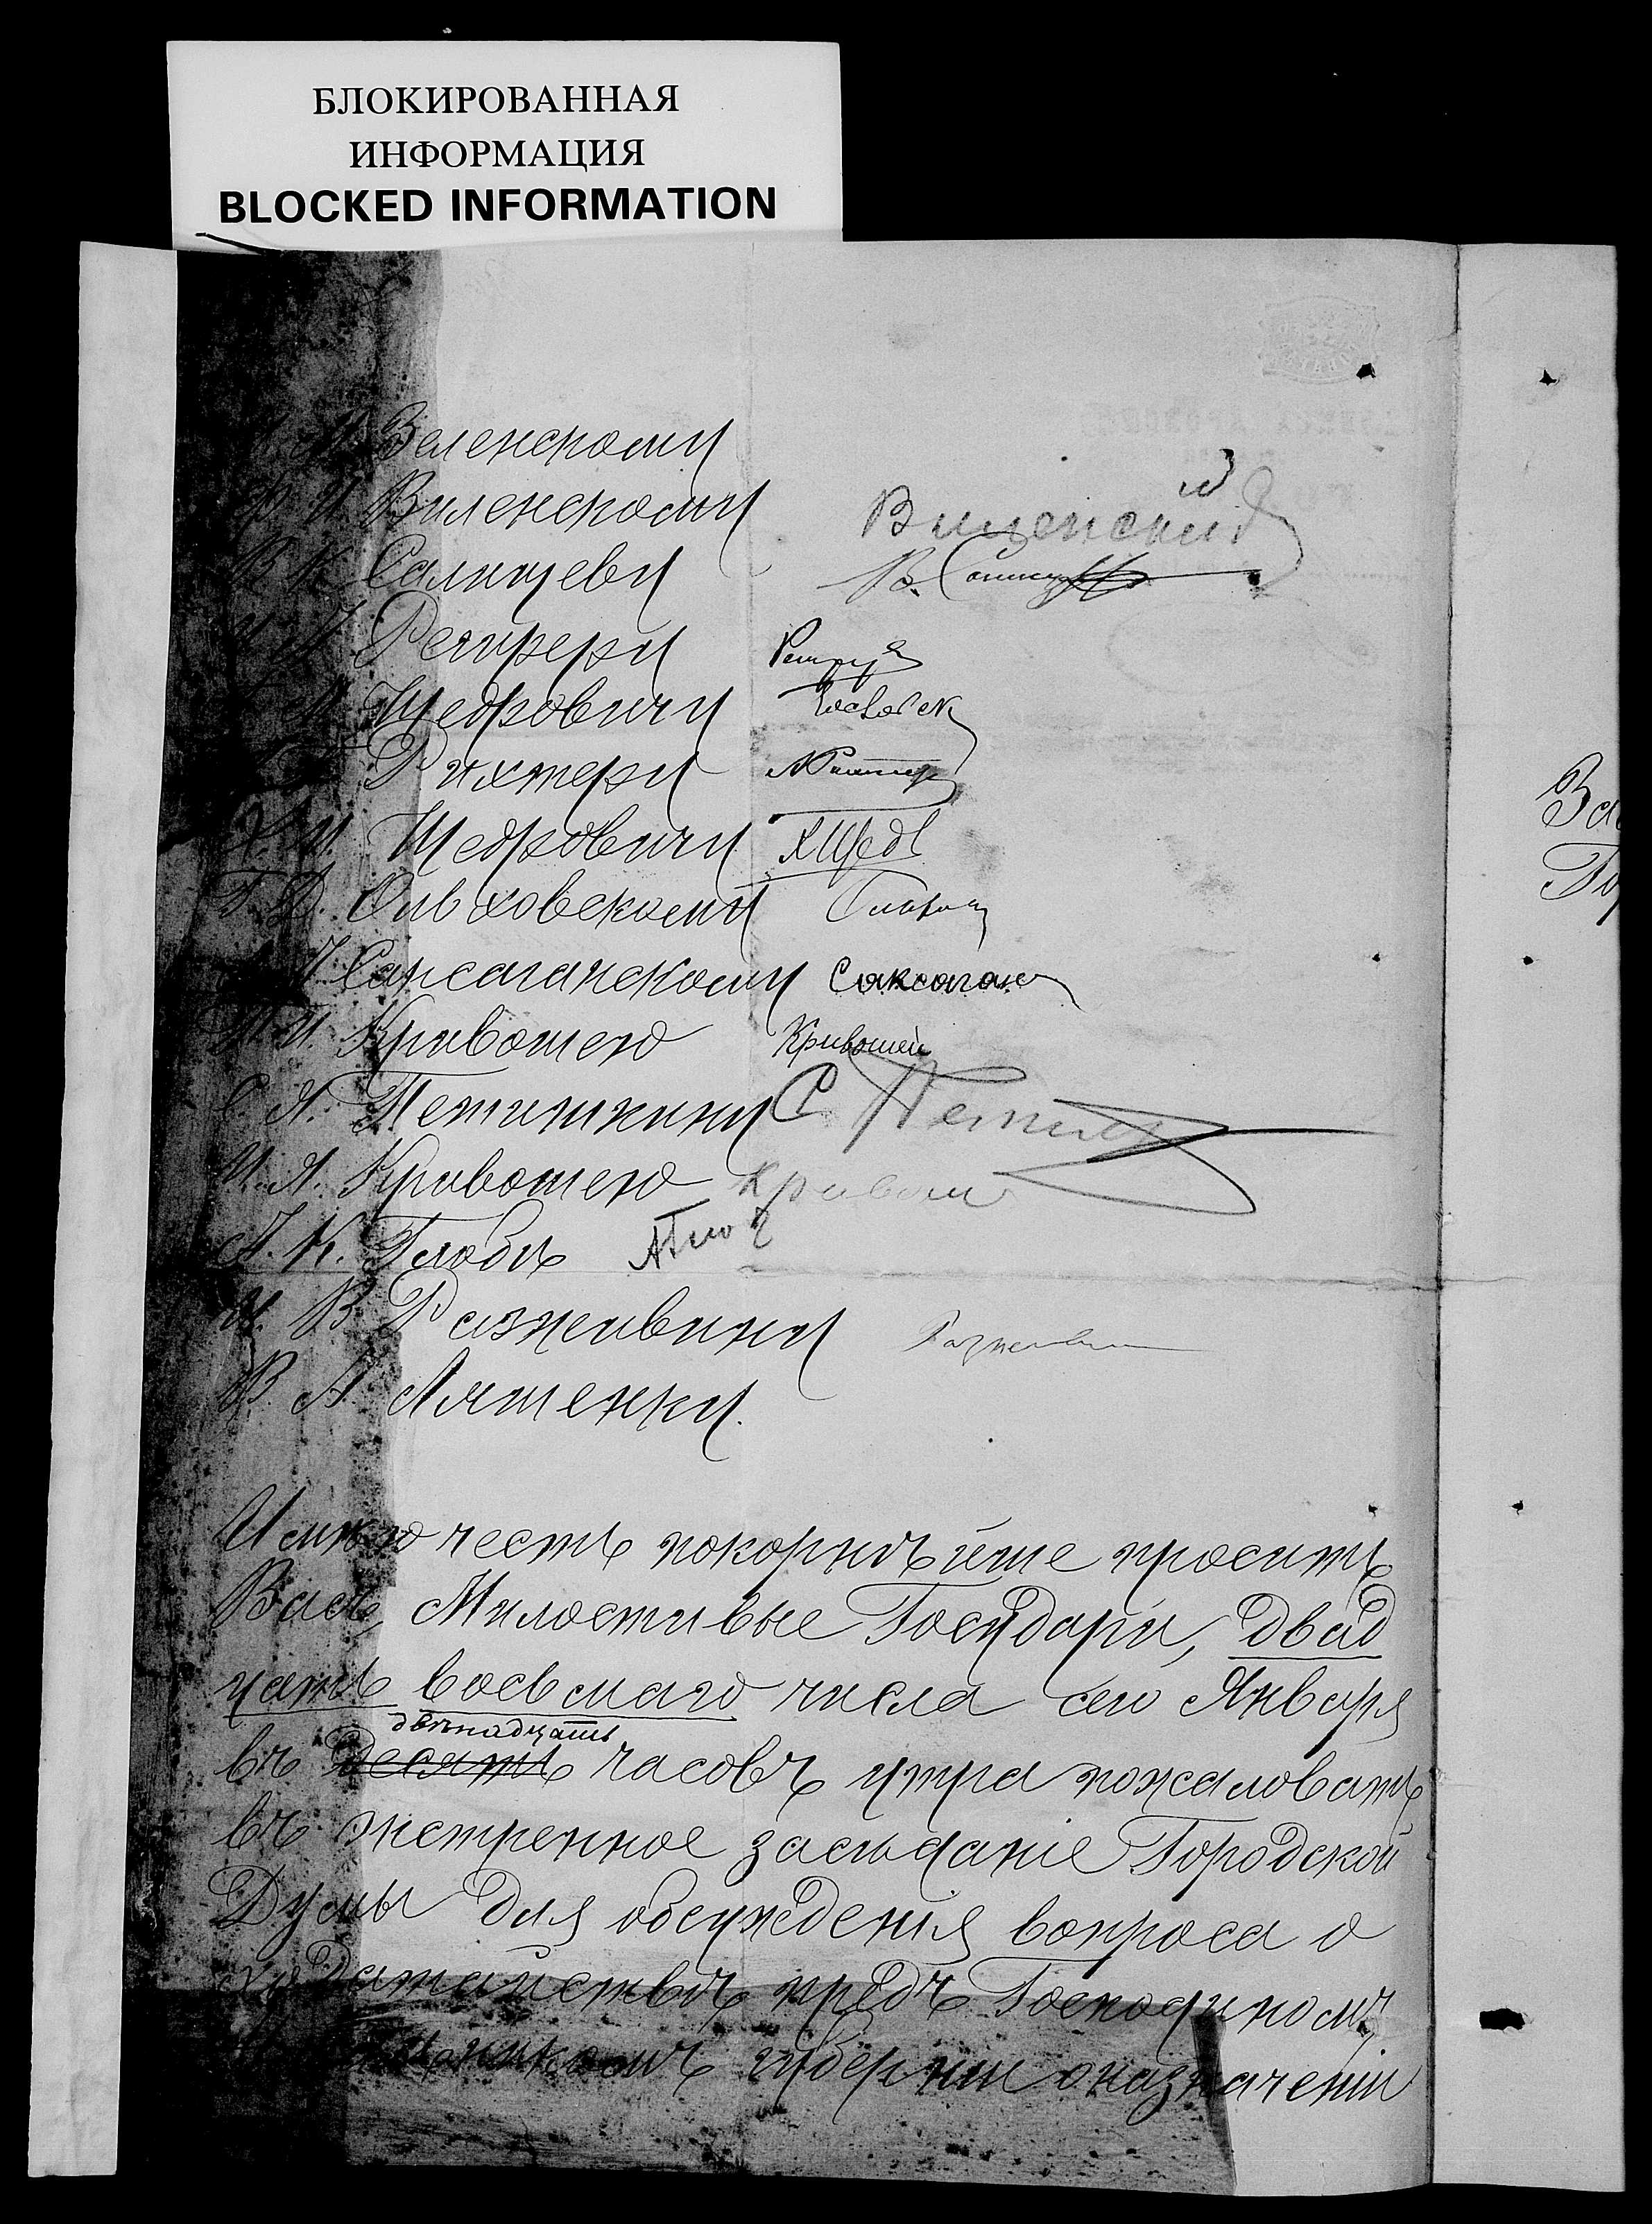 БЛОКИРОВАННАЯ
ИНФОРМАЦИЯ
BLOCKED INFORMATION
Зеленскому
Ф. И. Виленскому Виленский
В. К. Салищеву В.
Рейтреру
Щедровичу
Рихтеру
Х. М. Щедровичу ХЩедр
Г. Д. Ольховскому
Саксаганскому Саксаган
П. И. Кривошею Кривошей
С. Я. Петишкину С Пети
И. Я. Кривошею Кривош
А. К. Глобѣ АГло
И. В. Разживину Разживин
В. А. Ляшенку.
Имѣю честь покорнѣйше просить
Васъ, Милостивые Государи, двад
цать восьмаго числа сего Января
двѣнадцать
въ десять часовъ утра пожаловать
въ экстренное засѣданіе Городской
Думы для обсужденія вопроса о
ходатайствѣ предъ Господиномъ
губерніи о назначеніи
За
Го